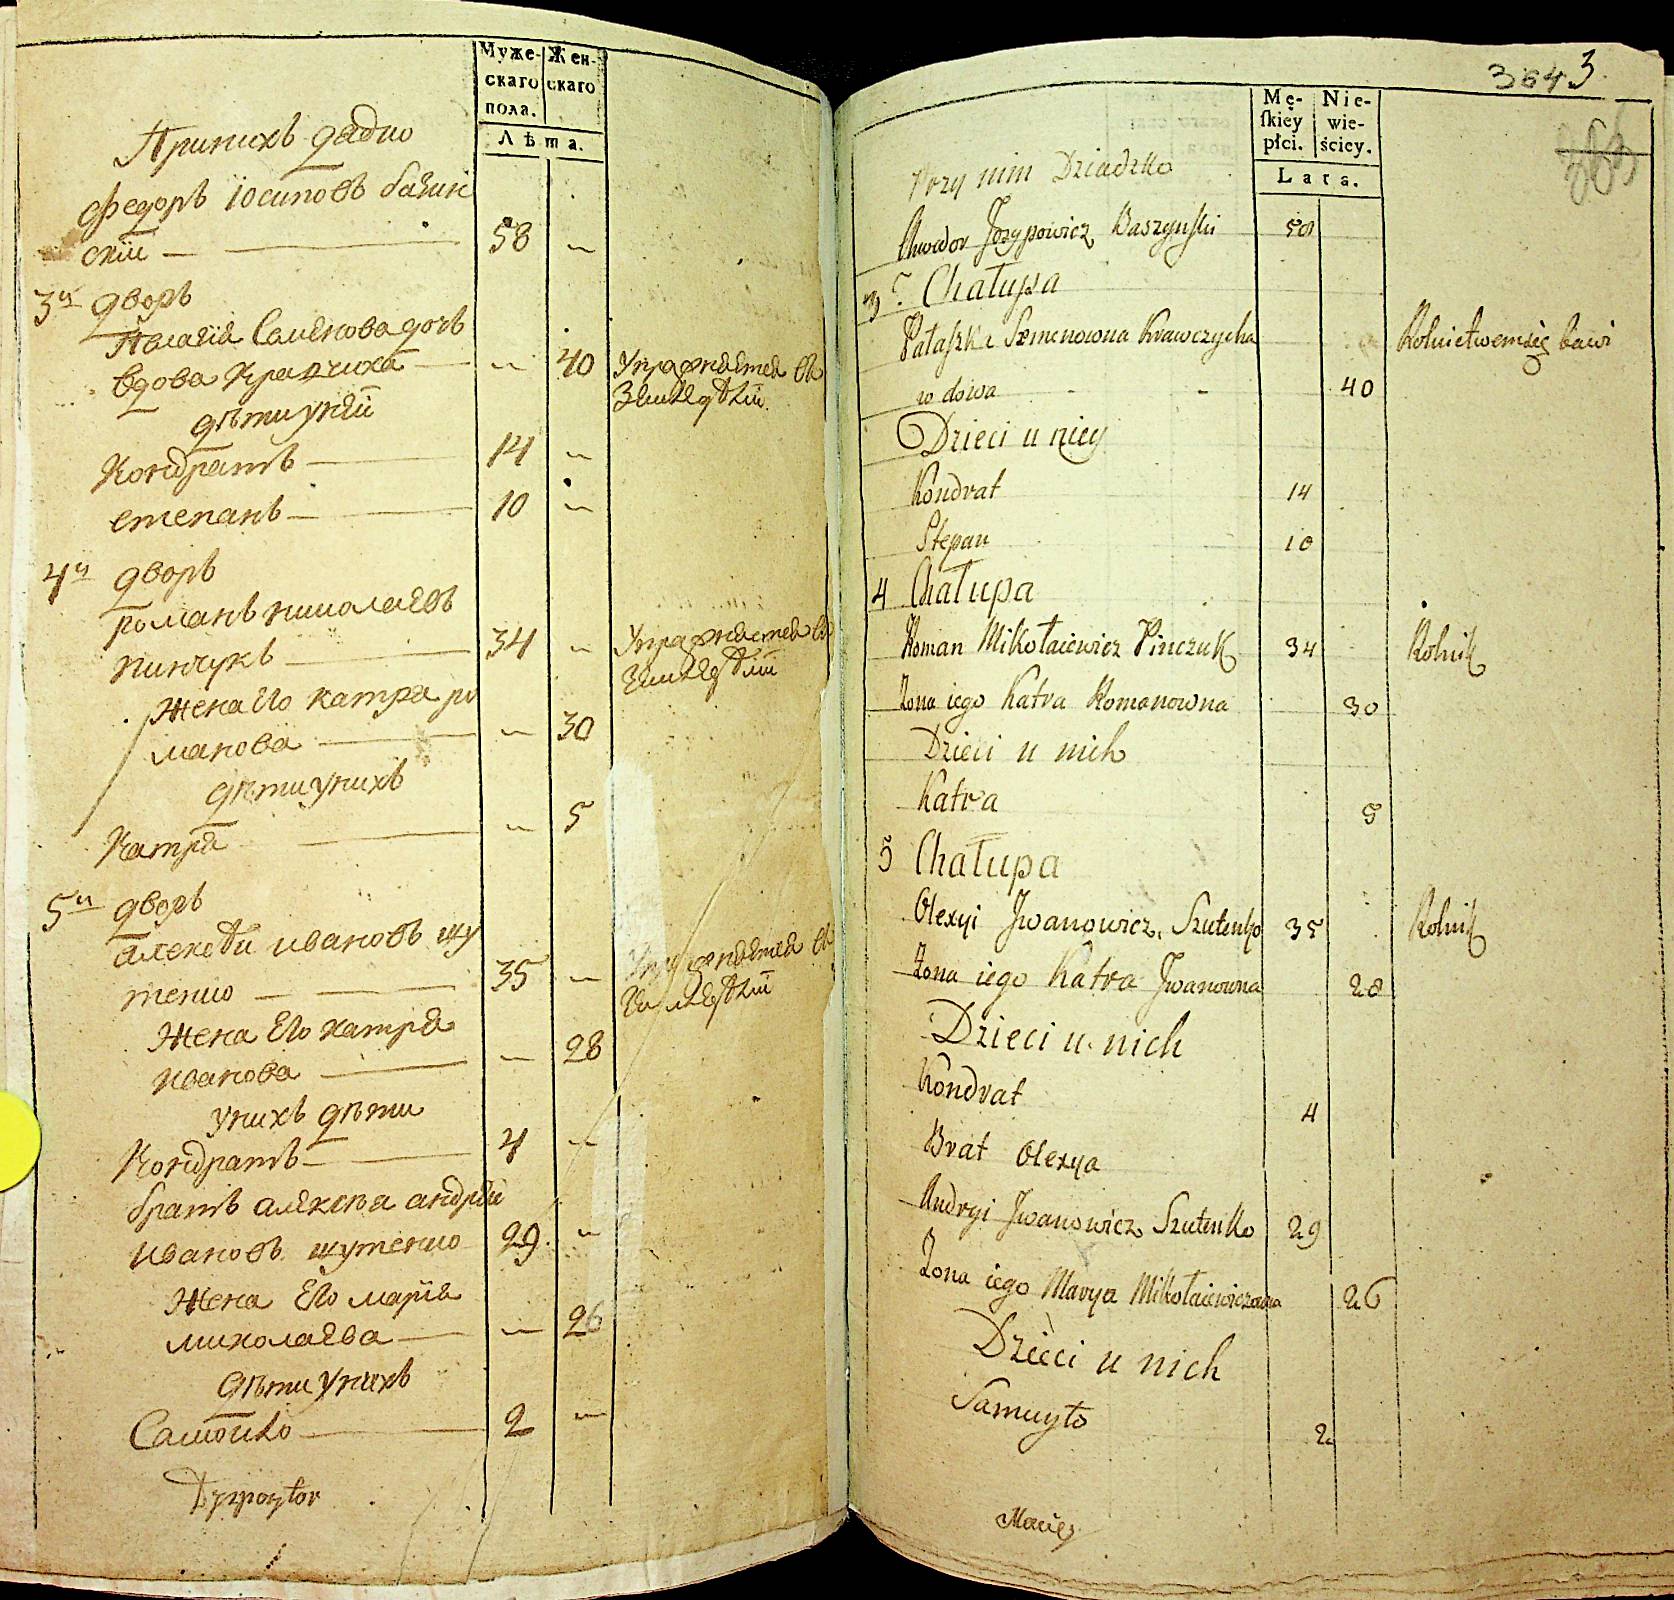 Муже-
скаго
пола.
Жен-
скаго
Лѣта.
Принихъ дядко
Федоръ Іосиповъ бачин
скіи — 58 —
3й дворъ
Палагія Семѣнова дочь
вдова Кравчиха — 40 Упражняется въ
Земледѣліи
дѣти унѣй
Кондратъ — 14 —
степанъ — 10 —
4й дворъ
романъ николаевъ
пинчукъ — 34 — Упражняется въ
Земледѣліи
Жена Его катря ро
манова — 30
дѣти унихъ
Катря — 5
5й дворъ
алексѣи ивановъ шу
тенко — 35 — Упражняется въ
Земледѣліи
Жена Его катря
иванова — 28
унихъ дѣти
Кондратъ — 4 —
братъ алексѣя андрѣи
ивановъ шутенко 29 —
Жена Его марія
миколаева — 26
дѣти унихъ
Самойло — 2 —
Dyspozytor
364 3
Mę-
skiey
płci.
Nie-
wie-
ściey.
Lata.
Przy nim Dziadzko
Chwedor Jozypowicz Baszynski 58
3 Chałupa
Pałaszka Semenowna Krawczycha Rolnictwem się bawi
wdowa - - 40
Dzieci u niey
Kondrat 14
Stepan 10
4 Chałupa
Roman Mikołaiewicz Pinczuk 34 Rolnik
Zona iego Katra Romanowna 30
Dzieci u nich
Katra 5
5 Chałupa
Olexyi Jwanowicz Szutenko 35 Rolnik
Zona iego Katra Jwanowna 28
Dzieci u nich
Kondrat 4
Brat Olexya
Andryi Jwanowicz Szutenko 29
Zona iego Marya Mikołaiewiczowna 26
Dzieci u nich
Samuyło 2
Maciey